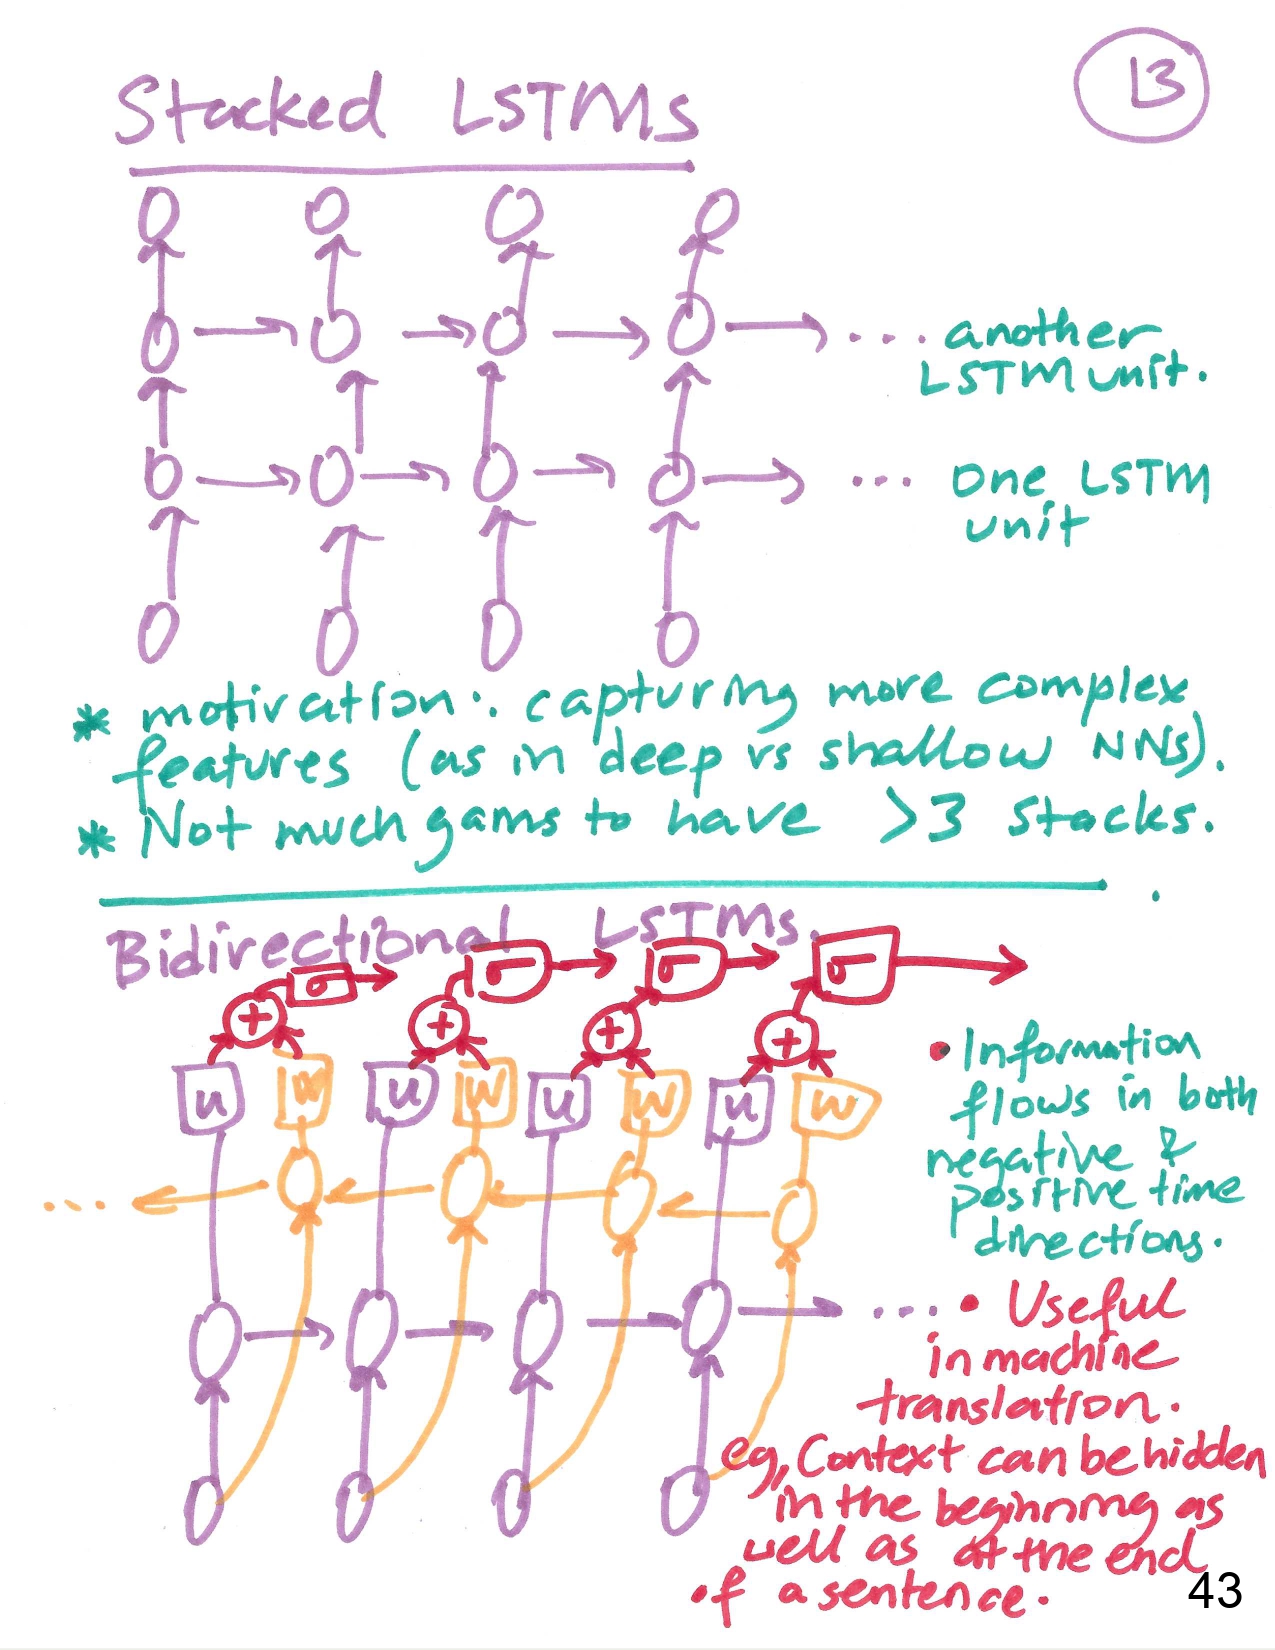 13
Stacked LSTMs
... another
LSTM unit.
... One LSTM
unit
* motivation: capturing more complex
features (as in deep vs shallow NNs).
* Not much gains to have >3 stacks.
Bidirectional LSTMs.
σ σ σ σ
+ + + +
u w u w u w u w
• Information
flows in both
negative &
positive time
directions.
...
... • Useful
in machine
translation.
eg, Context can be hidden
in the beginning as
well as at the end
of a sentence.
43